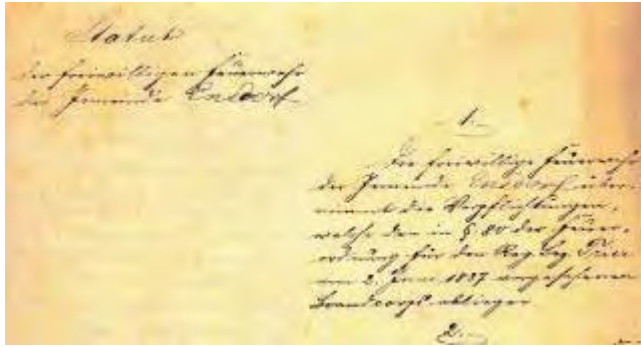 Statut
der freiwilligen Feuerwehr
der Gemeinde Ensdorf
1.
Die freiwillige Feuerwehr
der Gemeinde Ensdorf über-
nimmt die Verpflichtungen,
welche den in § 80 der Feuer-
ordnung für den Reg. Bez. Trier
vom 2. Juni 1837 vorgesehenen
Brandcorps obliegen
2.